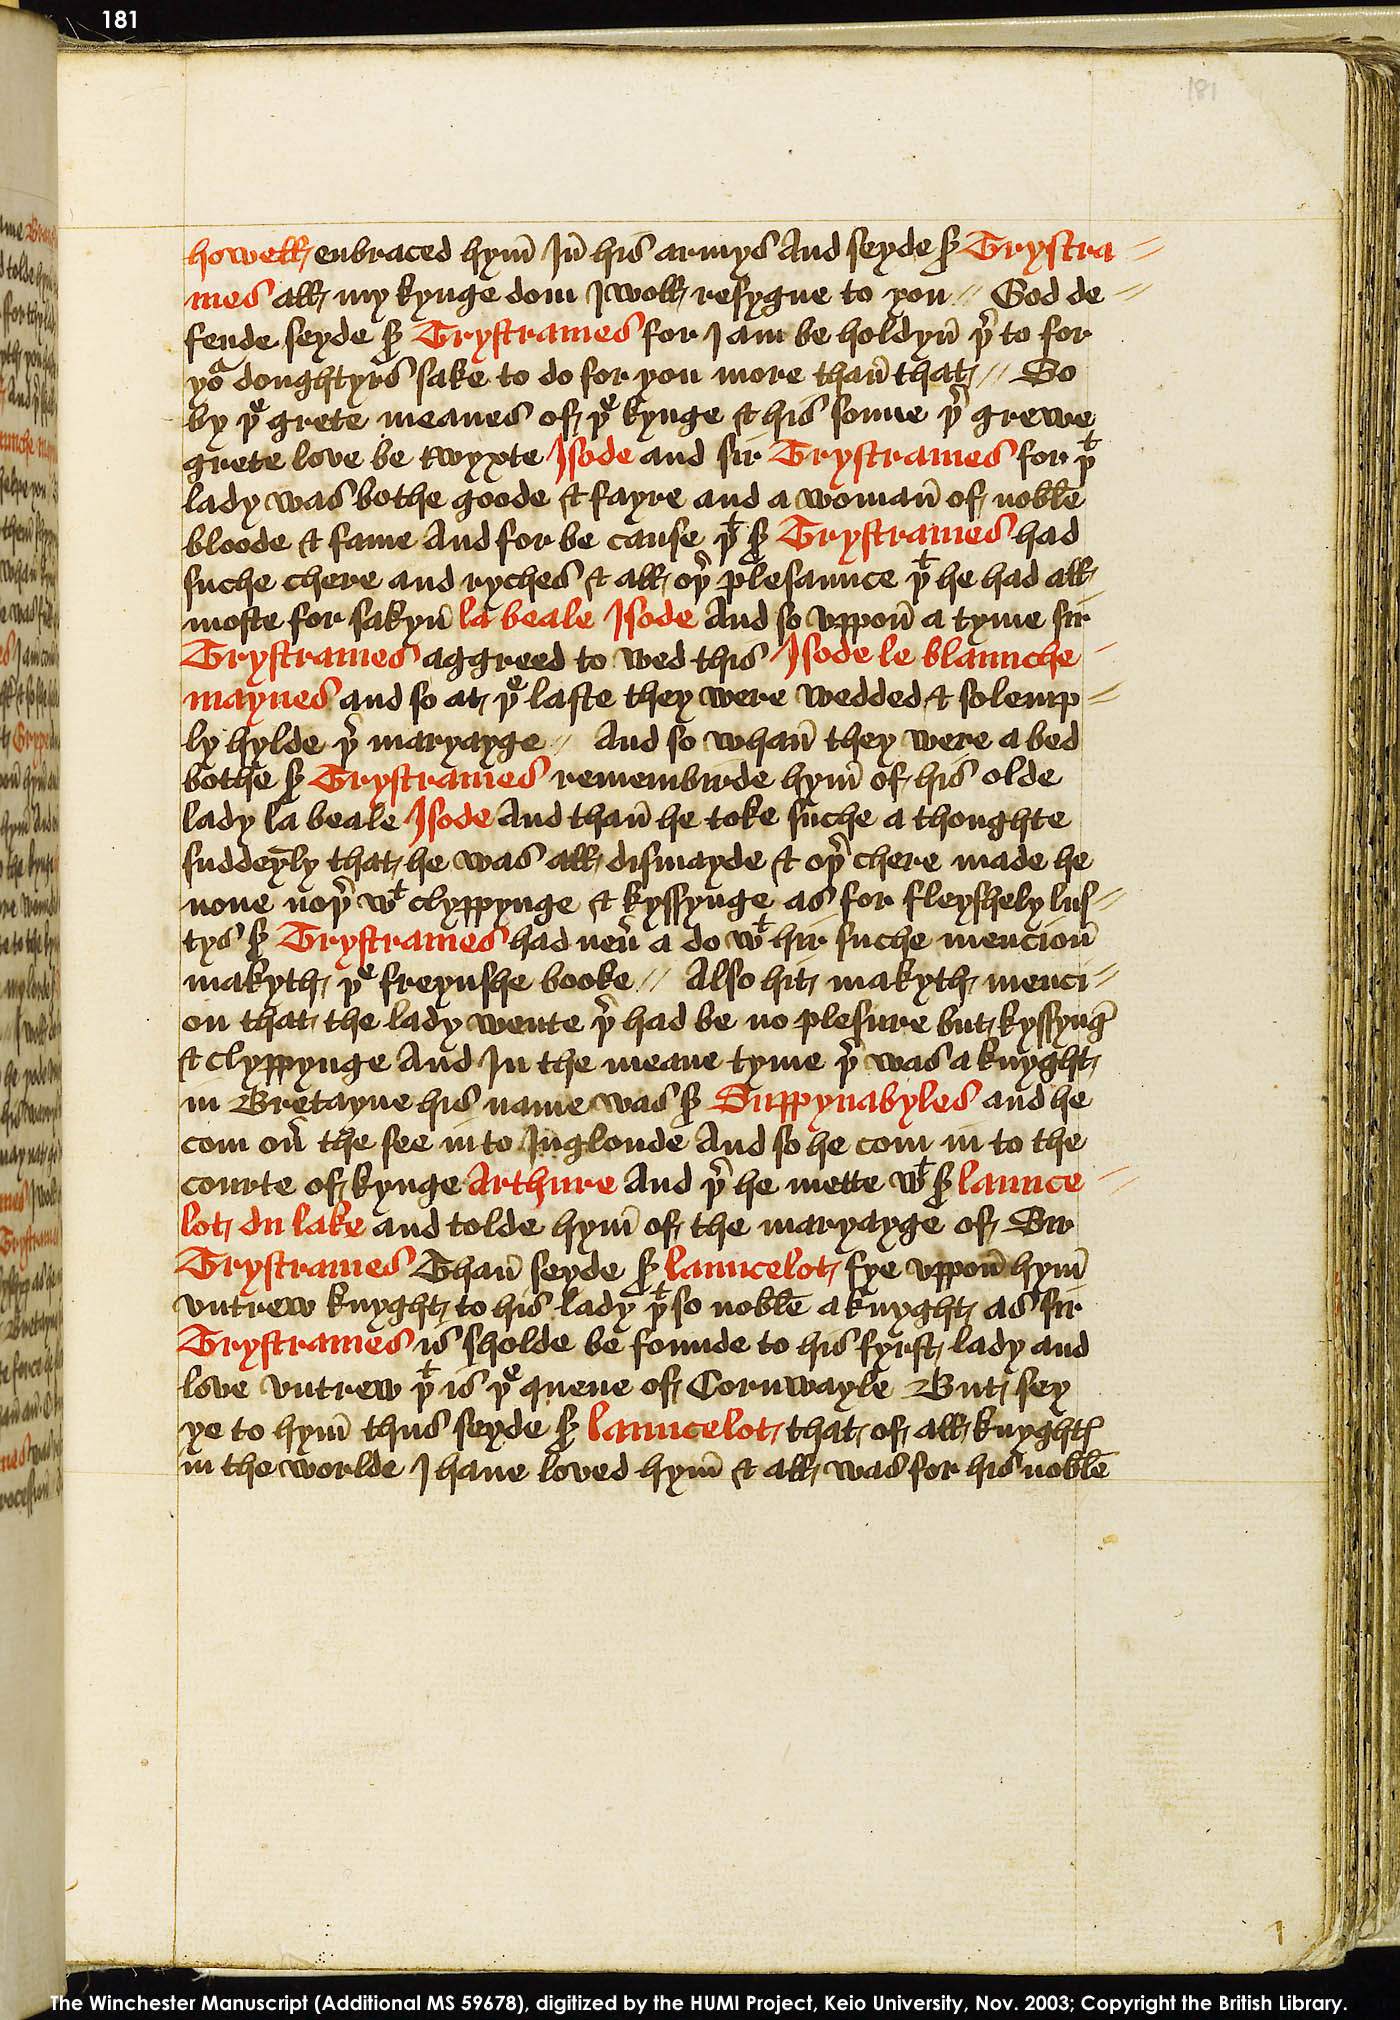 181
181
howell enbraced hym̄ Jn̄ his armys And seyde sͬ Trystra //
mes all my kynge dom J woll resygne to you // God de //
fende seyde sͬ Trystrames for J am be holdyn̄ þͬ to for
yoͬ doughtyrs sake to do for you more than̄ that // So
by þͤ grete meanes of þͤ kynge & his sonne þͬ grewe
grete love be twyxte Jsode and sir Trystrames for þͭ
lady was bothe goode & fayre and a woman̄ of noble
bloode & fame And for be cause þͭ sͬ Trystrames had
suche chere and ryches & all oþͬ plesaunce þͭ he had all
moste for sakyn̄ la beale Jsode And so vppon̄ a tyme sir
Trystrames aggreed to wed this Jsode le blaunche
maynes and so at þͤ laste they were wedded & solemp //
ly hylde þͬ maryayge // And so whan̄ they were a bed
bothe sͬ Trystrames remembirde hym̄ of his olde
lady la beale Jsode And than̄ he toke suche a thoughte
suddeynly that he was all dismayde & oþͬ chere made he
none noþͬ wͭ clyppynge & kyssynge as for fleyshely lus //
tys sͬ Trystrames had neuͬ a do wͭ hir suche mencion̄
makyth þͤ freynshe booke // Also hit makyth menci //
on that the lady wente þͬ had be no plesure but kyssynḡ
& clyppynge And Jn the meane tyme þͬ was a knyght
in Bretayne his name was sͬ Suppynabyles and he
com ouͬ the see in to Jnglonde And so he com in to the
courte of kynge Arthure And þͬ he mette wͭ sͬ launce //
lot du lake and tolde hym̄ of the maryayge of Sir
Trystrames Than̄ seyde sͬ launcelot fye vppon̄ hym̄
vntrew knyght to his lady þͭ so noble a knyght as sir
Trystrames is sholde be founde to his fyrst lady and
love vntrew þͭ is þͤ quene of Cornwayle But sey
ye to hym̄ thus seyde sͬ launcelot that of all knyghtꝭ
in the worlde J haue loved hym̄ & all was for his noble
The Winchester Manuscript (Additional MS 59678), digitized by the HUMI Project, Keio University, Nov. 2003; Copyright the British Library.